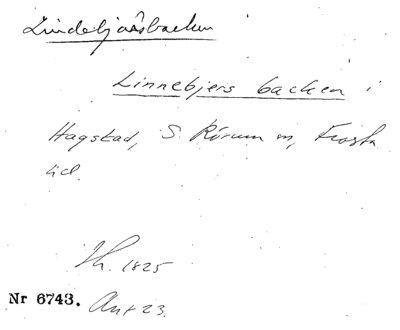 Lindebjärsbacken
Linnebjers backen i
Hagstad, S. Rörum sn, Frosta
Th. 1825
Nr 6743. Ant 23.